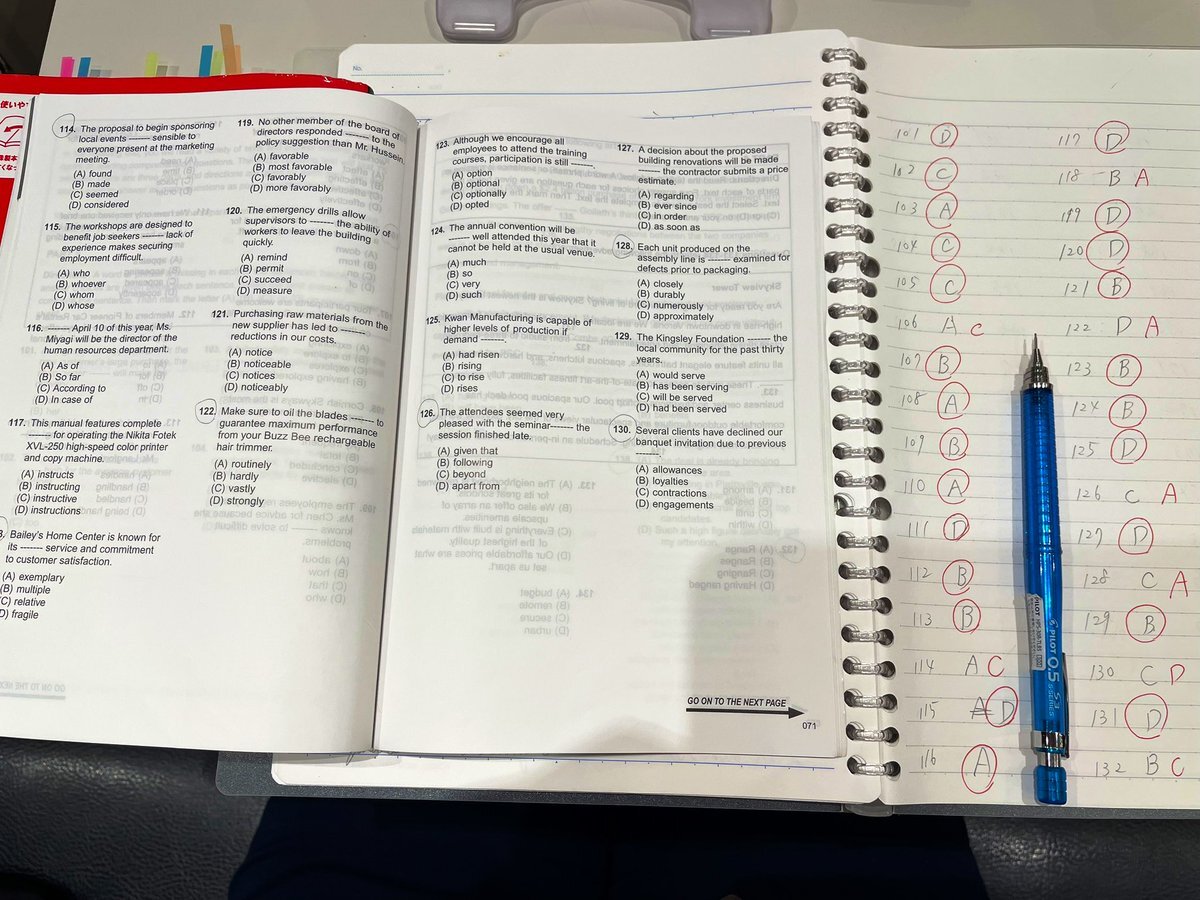 使いや
114. The proposal to begin sponsoring
local events ------- sensible to
everyone present at the marketing
meeting.
(A) found
(B) made
(C) seemed
(D) considered
115. The workshops are designed to
benefit job seekers ------- lack of
experience makes securing
employment difficult.
(A) who
(B) whoever
(C) whom
(D) whose
116. ------- April 10 of this year, Ms.
Miyagi will be the director of the
human resources department.
(A) As of
(B) So far
(C) According to
(D) In case of
117. This manual features complete
------- for operating the Nikita Fotek
XVL-250 high-speed color printer
and copy machine.
(A) instructs
(B) instructing
(C) instructive
(D) instructions
Bailey's Home Center is known for
its ------- service and commitment
to customer satisfaction.
(A) exemplary
(B) multiple
(C) relative
(D) fragile
119. No other member of the board of
directors responded ------- to the
policy suggestion than Mr. Hussein.
(A) favorable
(B) most favorable
(C) favorably
(D) more favorably
120. The emergency drills allow
supervisors to ------- the ability of
workers to leave the building
quickly.
(A) remind
(B) permit
(C) succeed
(D) measure
121. Purchasing raw materials from the
new supplier has led to -------
reductions in our costs.
(A) notice
(B) noticeable
(C) notices
(D) noticeably
122. Make sure to oil the blades ------- to
guarantee maximum performance
from your Buzz Bee rechargeable
hair trimmer.
(A) routinely
(B) hardly
(C) vastly
(D) strongly
No.
123. Although we encourage all
employees to attend the training
courses, participation is still -------.
(A) option
(B) optional
(C) optionally
(D) opted
124. The annual convention will be
------- well attended this year that it
cannot be held at the usual venue.
(A) much
(B) so
(C) very
(D) such
125. Kwan Manufacturing is capable of
higher levels of production if
demand -------.
(A) had risen
(B) rising
(C) to rise
(D) rises
126. The attendees seemed very
pleased with the seminar------- the
session finished late.
(A) given that
(B) following
(C) beyond
(D) apart from
127. A decision about the proposed
building renovations will be made
------- the contractor submits a price
estimate.
(A) regarding
(B) ever since
(C) in order
(D) as soon as
128. Each unit produced on the
assembly line is ------- examined for
defects prior to packaging.
(A) closely
(B) durably
(C) numerously
(D) approximately
129. The Kingsley Foundation ------- the
local community for the past thirty
years.
(A) would serve
(B) has been serving
(C) will be served
(D) had been served
130. Several clients have declined our
banquet invitation due to previous
-------.
(A) allowances
(B) loyalties
(C) contractions
(D) engagements
GO ON TO THE NEXT PAGE
071
101 D
102 C
103 A
104 C
105 C
106 A C
107 B
108 A
109 B
110 A
111 D
112 B
113 B
114 A C
115 A D
116 A
117 D
118 B A
119 D
120 D
121 B
122 D A
123 B
124 B
105 D
126 C A
127 D
128 C A
129 B
130 C D
131 D
132 B C
PILOT 0.5 S3